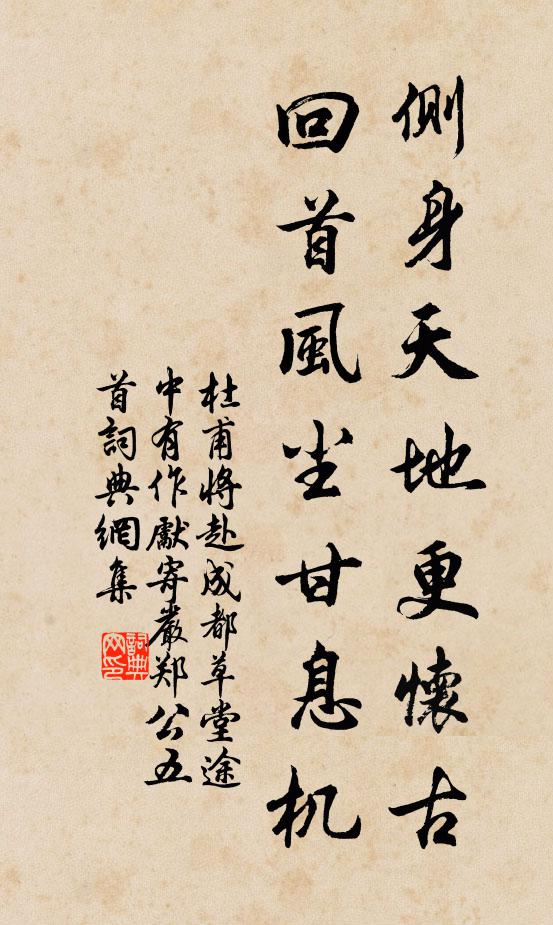 側身天地更懷古
回首風尘甘息机
杜甫將赴成都草堂途
中有作獻寄嚴郑公五
首詞典網集
詞典
网印